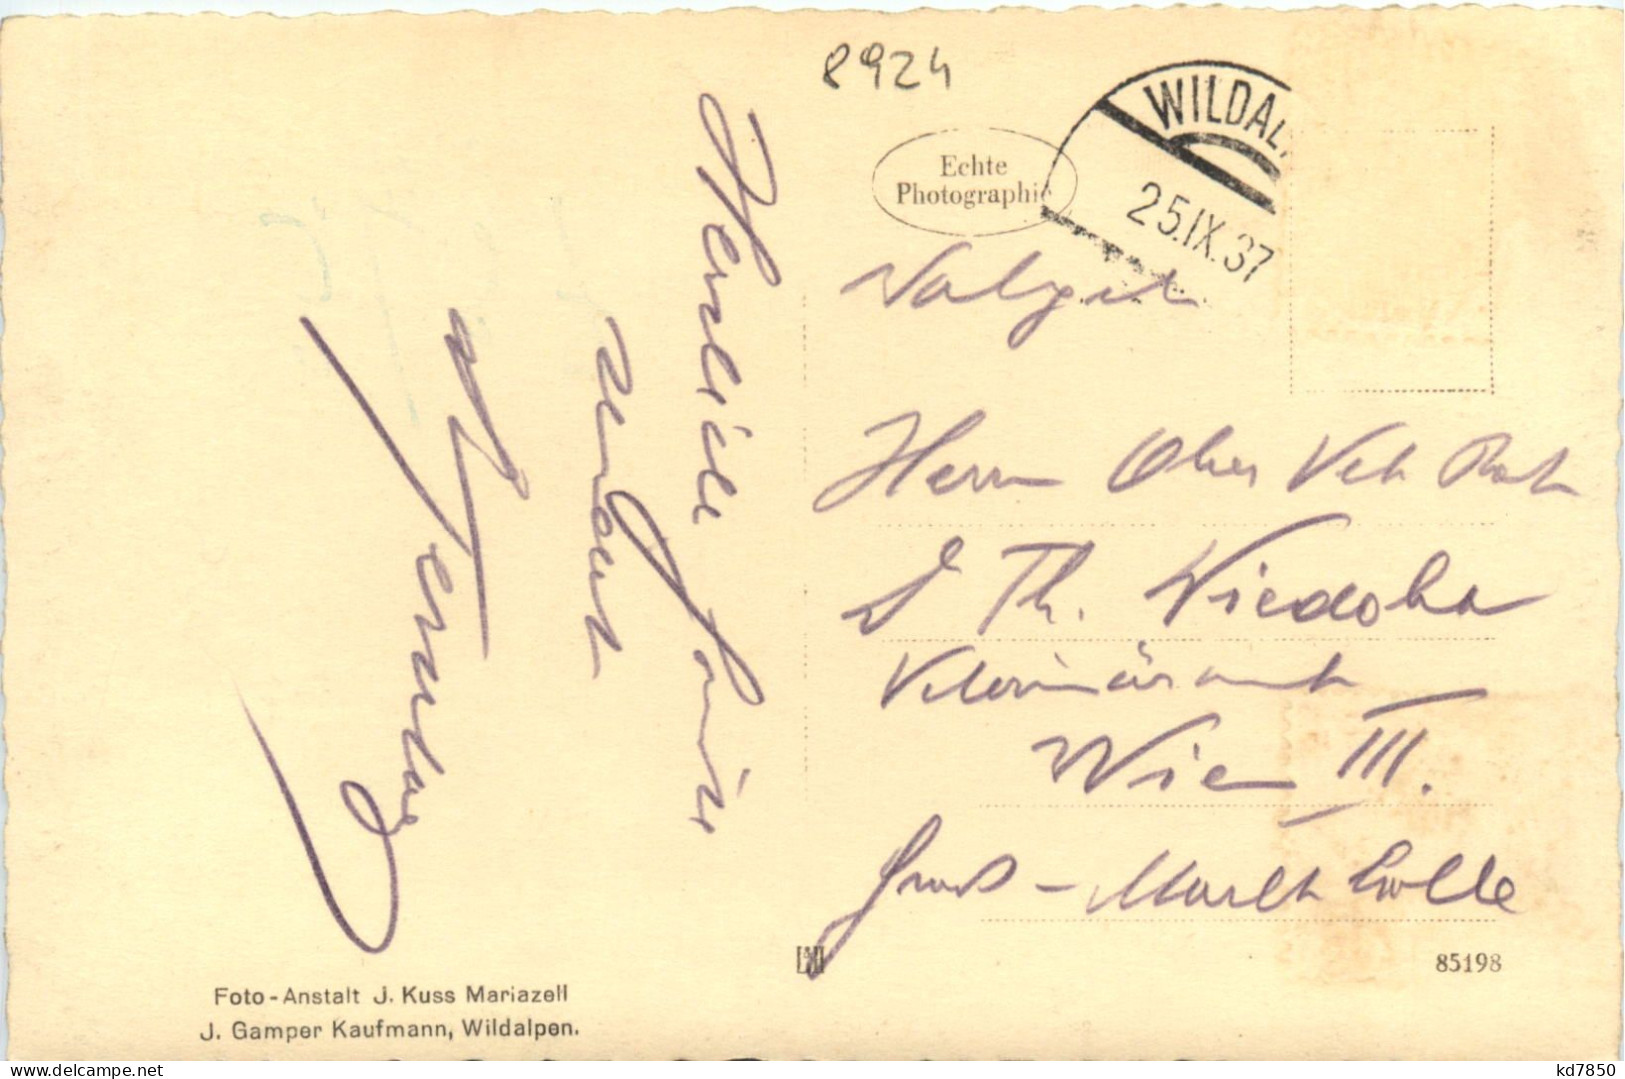 8924
WILDAL
25.IX.37
Echte
Photographie
Herrn Ober Vet Rat
D Th. Niedoba
Veterinäramt
Wien III.
Gross-Markt Halle
Herzliche Grüsse
85198
Foto-Anstalt J. Kuss Mariazell
J. Gamper Kaufmann, Wildalpen.
delcampe.net
kd7850